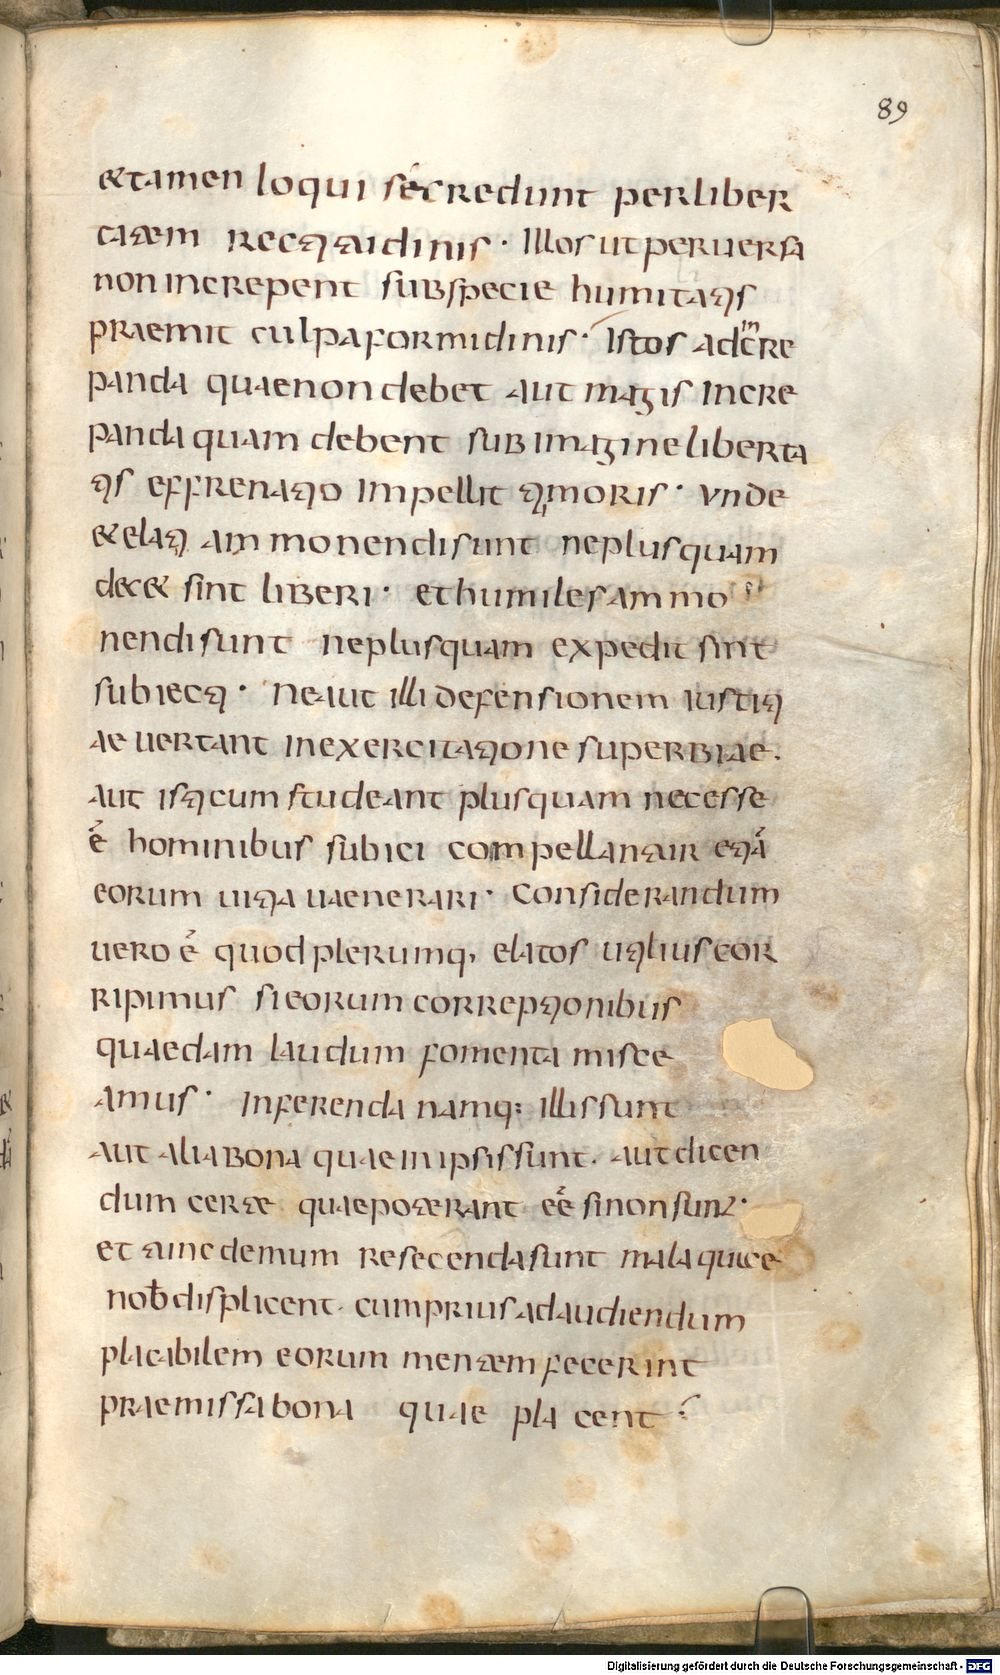 89
& tamen loqui se credunt per liber
tatem rectitudinis · Illos ut peruersa
non increpent sub specie humitatis
praemit culpa formidinis · Istos ad incre
panda quae non debet aut magis incre
panda quam debent sub imagine liberta
tis effrenatio impellit timoris · Vnde
& elati ammonendi sunt ne plus quam
dec& sint liberi · et humiles ammo
nendi sunt ne plus quam expedit sint
subiecti · Ne aut illi defensionem iustiti
ae uertant in exercitatione superbiae.
aut isti cum studeant plus quam necesse
ē hominibus subici compellantur etiā
eorum uitia uaenerari · Considerandum
uero ē quod plerumq, elatos utilius cor
ripimus si eorum correptionibus
quaedam laudum fomenta misce
amus · Inferenda namq; illis sunt
aut alia bona quae in ipsis sunt. aut dicen
dum certe quae poterant eē si non sunt ·
et tunc demum resecenda sunt mala quae
nob displicent. cum prius ad audiendum
placabilem eorum mentem fecerint
praemissa bona quae placent
Digitalisierung gefördert durch die Deutsche Forschungsgemeinschaft - DFG